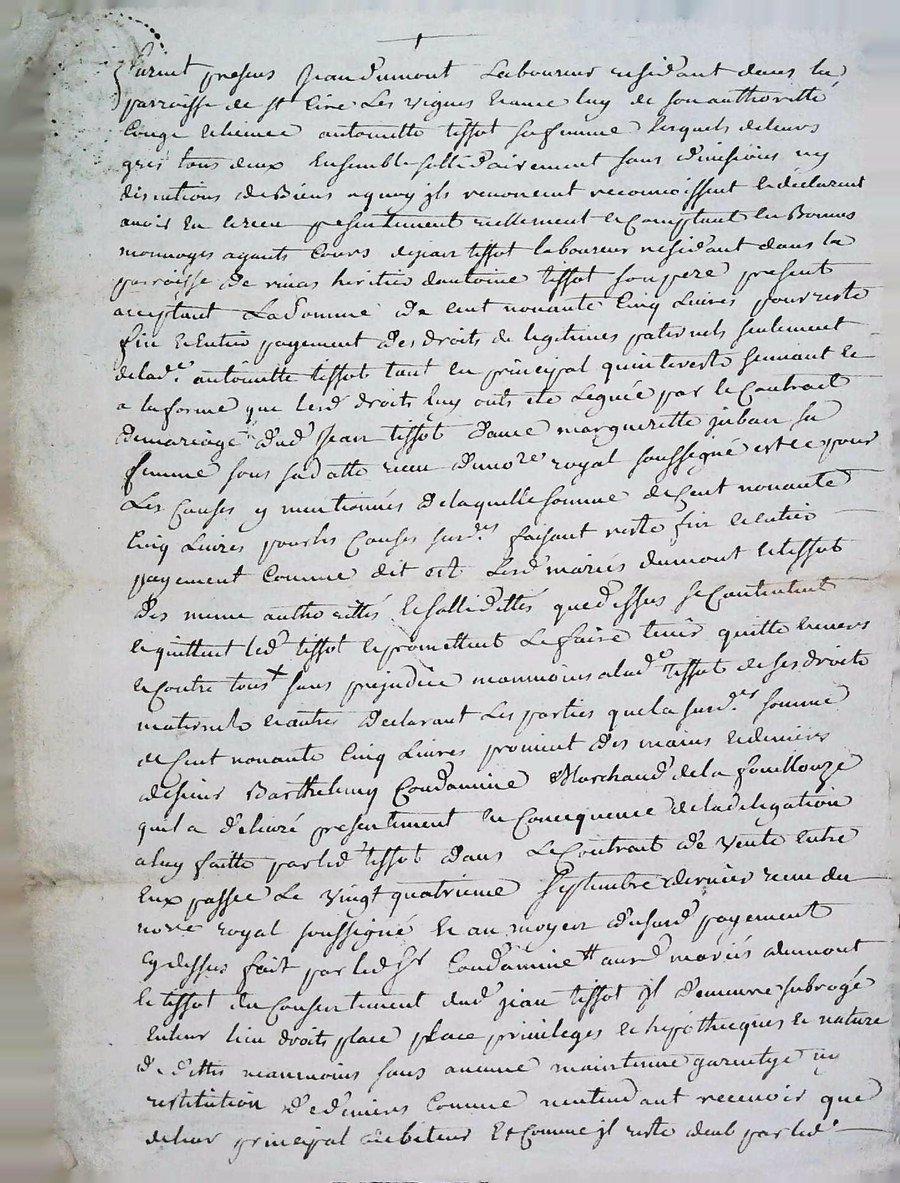 furent presens Jean dumont Laboureur residant dans la
parroisse de st Cire Les vignes Lequel luy de son authorité
Congé licence antoinette tissot sa femme lesquels de leurs
grés tous deux Ensemble sollidairement sans division ny
discutions de Biens aquoy jls renoncent reconnoissent et declarent
avoir Eu et receu presentement reellement et Comptant En Bonnes
monnoyes ayants Cours de jean tissot laboureur residant dans la
parroisse de heritier dantoine tissot son pere present
acceptant La somme de cent nonante Cinq Livres pour reste
fin et Entier payement des droits de legitimes paternels seulement
de lad.e antoinette tissot tant en principal quinterests suivant et
a la forme que lesd droits luy onts eté Leguée par le Contract
de mariage dud Jean tissot davec margueritte juban sa
femme sous sa datte receu du no.re royal soussigné et ce pour
Les Causes y mentionnés de laquelle somme de Cent nonante
Cinq Livres pour les Causes susd.es faisant reste fin et Entier
payement Comme dit est Lesd mariés dumont et tissot
des meme authorittés et sollidittés que dessus se Contentent
et quittent led tissot et promettent Le faire tenir quitte Envers
et Contre tous + sans prejudice neanmoins a lad.e tissot de ses droits
maternels et autres declarant Les parties que la susd.e somme
de Cent nonante Cinq Livres provient des mains et deniers
de sieur Barthelemy Condamine Marchand de la fouillouze
quil a delivré presentement En Consequence de la delegation
a luy faitte par led tissot dans Le Contrat de Vente Entre
Eux passée Le vingt quatrieme Septembre dernier receu du
no.re royal soussigné Et au moyen du susd payement
Cy dessus fait par led sr Condamine ++ auxd mariés dumont
Et tissot du Consentement dud jean tissot jl demeure subrogé
En leur lieu droits place place privileges et hipothecques et nature
de dettes neanmoins sans aucune maintenue garentye ny
restitution de deniers Comme nentendant recevoir que
de leur principal debiteur Et Comme jl reste deub par led.